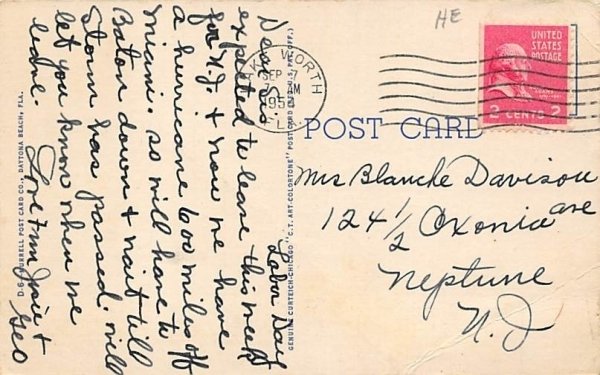 HE
WORTH
SEP 7
AM
195
FLA.
UNITED
STATES
POSTAGE
2 CENTS 2
POST CARD
Mrs Blanche Davison
124 1/2 Oxonia ave
Neptune
N.J
Labor Day
Dear Sis.
expected to leave this week
for N.J. & now we have
a hurricane 600 miles off
Miami. so will have to
Baton down & wait till
Storm has passed. will
let you know when we
leave.
Love from Josie &
Geo
GENUINE CURTEICH-CHICAGO "C.T. ART-COLORTONE" POST CARD (REG. U.S. PAT. OFF.)
BURRELL POST CARD CO., DAYTONA BEACH, FLA.